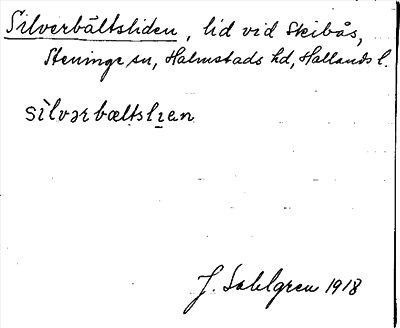 Silverbältsliden, lid vid Skibås,
Steninge sn, Halmstads hd, Hallands l.
sìlvərbœltslɪ̱en
J. Sahlgren 1918